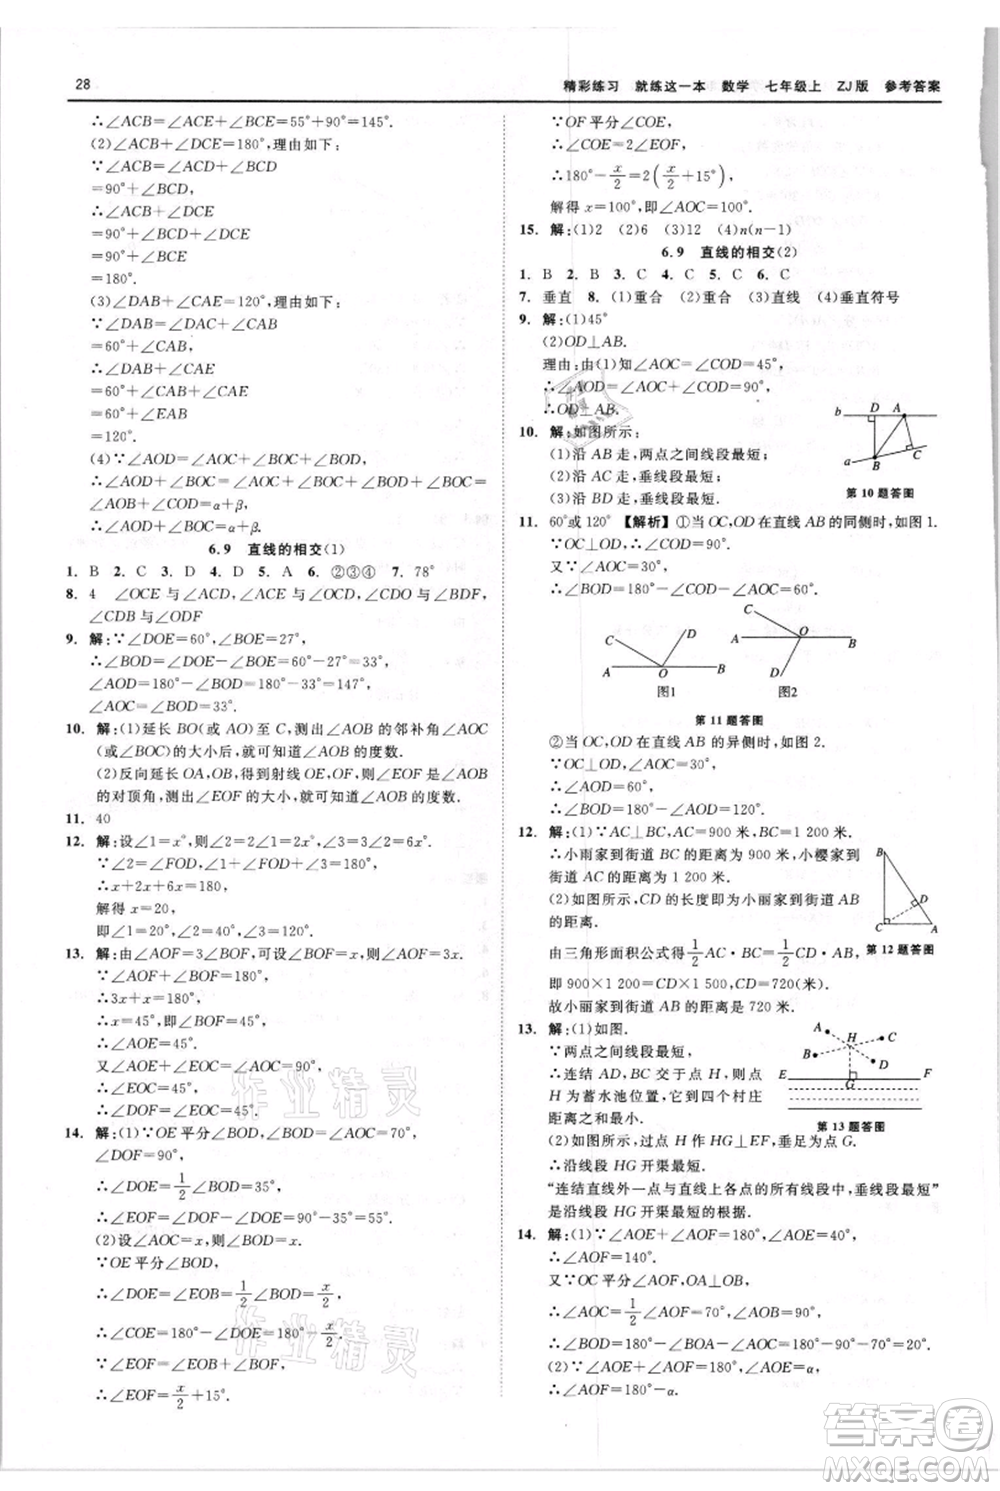 28
精彩练习 就练这一本 数学 七年级上 ZJ版 参考答案
∴∠ACB=∠ACE+∠BCE=55°+90°=145°.
(2)∠ACB+∠DCE=180°,理由如下:
∵∠ACB=∠ACD+∠BCD
=90°+∠BCD,
∴∠ACB+∠DCE
=90°+∠BCD+∠DCE
=90°+∠BCE
=180°.
(3)∠DAB+∠CAE=120°,理由如下:
∵∠DAB=∠DAC+∠CAB
=60°+∠CAB,
∴∠DAB+∠CAE
=60°+∠CAB+∠CAE
=60°+∠EAB
=120°.
(4)∵∠AOD=∠AOC+∠BOC+∠BOD,
∴∠AOD+∠BOC=∠AOC+∠BOC+∠BOD+∠BOC=α+β,
∴∠AOD+∠BOC=α+β.
6.9 直线的相交(1)
1. B 2. C 3. D 4. D 5. A 6. ②③④ 7. 78°
8. 4 ∠OCE与∠ACD,∠ACE与∠OCD,∠CDO与∠BDF,
∠CDB与∠ODF
9. 解:∵∠DOE=60°,∠BOE=27°,
∴∠BOD=∠DOE-∠BOE=60°-27°=33°,
∠AOD=180°-∠BOD=180°-33°=147°,
∠AOC=∠BOD=33°.
10. 解:(1)延长BO(或AO)至C,测出∠AOB的邻补角∠AOC
(或∠BOC)的大小后,就可知道∠AOB的度数.
(2)反向延长OA,OB,得到射线OE,OF,因为∠EOF是∠AOB
的对顶角,测出∠EOF的大小后,就可知道∠AOB的度数.
11. 40
12. 解:设∠1=x°,则∠2=2∠1=2x°,∠3=3∠1=3x°.
∵∠2=∠FOD,∠1+∠FOD+∠3=180°,
∴x+2x+3x=180,
解得x=20,
即∠1=20°,∠2=40°,∠3=60°.
13. 解:由∠AOF=3∠BOF,设∠BOF=x,则∠AOF=3x.
∵∠AOF+∠BOF=180°,
∴3x+x=180°,
∴x=45°,即∠BOF=45°,
∴∠AOE=45°.
又∠AOC+∠AOE=∠EOC=90°,
∴∠EOC=90°,
∴∠DOF=∠EOC-∠AOC=45°.
14. 解:(1)∵OE平分∠BOD,∠BOD=∠AOC=70°,
∠DOF=90°,
∴∠DOE=1/2∠BOD=35°,
∴∠EOF=∠DOF-∠DOE=90°-35°=55°.
(2)设∠AOC=x,则∠BOD=x.
∵OE平分∠BOD,
∴∠DOE=∠EOB=1/2∠BOD=x/2,
∴∠COE=180°-∠DOE=180°-x/2.
∵∠EOF=∠BOE+∠BOF,
∴∠EOF=x/2+15°.
∵OF平分∠COE,
∴∠COE=2∠EOF,
∴180°-x/2=2(x/2+15°),
解得x=100°,即∠AOC=100°.
15. 解:(1)2 (2)6 (3)12 (4)n(n-1)
6.9 直线的相交(2)
1. B 2. B 3. C 4. C 5. C 6. C
7. 垂直 8. (1)重合 (2)重合 (3)直线 (4)垂直符号
9. 解:(1)45°
(2)OD⊥AB.
理由:由(1)知∠AOC=∠COD=45°,
∴∠AOD=∠AOC+∠COD=90°,
∴OD⊥AB.
10. 解:如图所示:
(1)沿AB走,两点之间线段最短.
(2)沿AC走,垂线段最短.
(3)沿BD走,垂线段最短.
b D A a B C
第10题答图
11. 60°或120° 【解析】①当OC,OD在直线AB的同侧时,如图1.
∵OC⊥OD,∴∠COD=90°.
又∵∠AOC=30°,
∴∠BOD=180°-∠COD-∠AOC=60°.
C D A O B
图1
C A O B D
图2
第11题答图
②当OC,OD在直线AB的异侧时,如图2.
∵OC⊥OD,∠AOC=30°,
∴∠AOD=60°,
∴∠BOD=180°-∠AOD=120°.
12. 解:(1)∵AC⊥BC,AC=900米,BC=1 200米,
∴小雨家到街道BC的距离为900米,小樱家到
街道AC的距离为1 200米.
(2)如图,CD的长度即为小丽家到街道AB
的距离.
由三角形面积公式得1/2AC·BC=1/2CD·AB,
即900×1 200=CD×1 500,∴CD=720(米).
故小丽家到街道AB的距离是720米.
B D C A
第12题答图
13. 解:(1)如图.
∵两点之间线段最短,
∴连结AD,BC交于点H,则点
H为蓄水池位置,它到四个村庄
距离之和最小.
A H C B D E G F
第13题答图
(2)如图所示,过点H作HG⊥EF,垂足为点G.
∴沿线段HG开渠最短.
“连结直线外一点与直线上各点的所有线段中,垂线段最短”
是沿线段HG开渠最短的根据.
14. 解:(1)∵∠AOE+∠AOF=180°,∠AOE=40°,
∴∠AOF=140°.
又∵OC平分∠AOF,OA⊥OB,
∴∠AOC=1/2∠AOF=70°,∠AOB=90°,
∴∠BOD=180°-∠BOA-∠AOC=180°-90°-70°=20°.
(2)∵∠AOE+∠AOF=180°,∠AOE=α,
∴∠AOF=180°-α.
作业精灵
作业精灵
答案圈
MXQE.COM